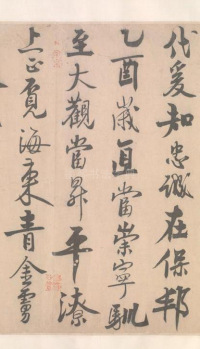 代爰知忠誠在保邦
乙酉歲直當崇寧馴
至大觀當昇平潦
上正覓海東青金